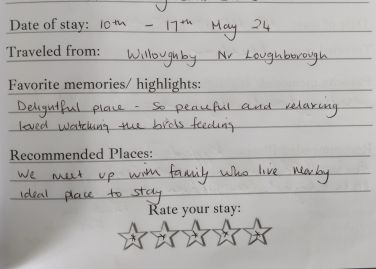 Date of stay: 10th - 17th May 24
Traveled from: Willoughby Nr Loughborough
Favorite memories/ highlights:
Delightful place - so peaceful and relaxing
loved watching the birds feeding
Recommended Places:
we meet up with family who live nearby
ideal place to stay
Rate your stay: